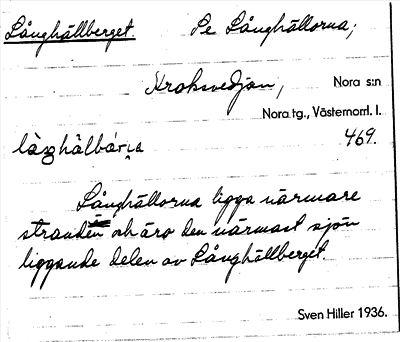 Långhällberget. Se Långhällorna;
Kroksvedjan, Nora s:n
Nora tg., Västernorrl. l.
469.
Långhällorna ligga närmare
stranden och äro den närmast sjön
liggande delen av Långhällberget.
Sven Hiller 1936.